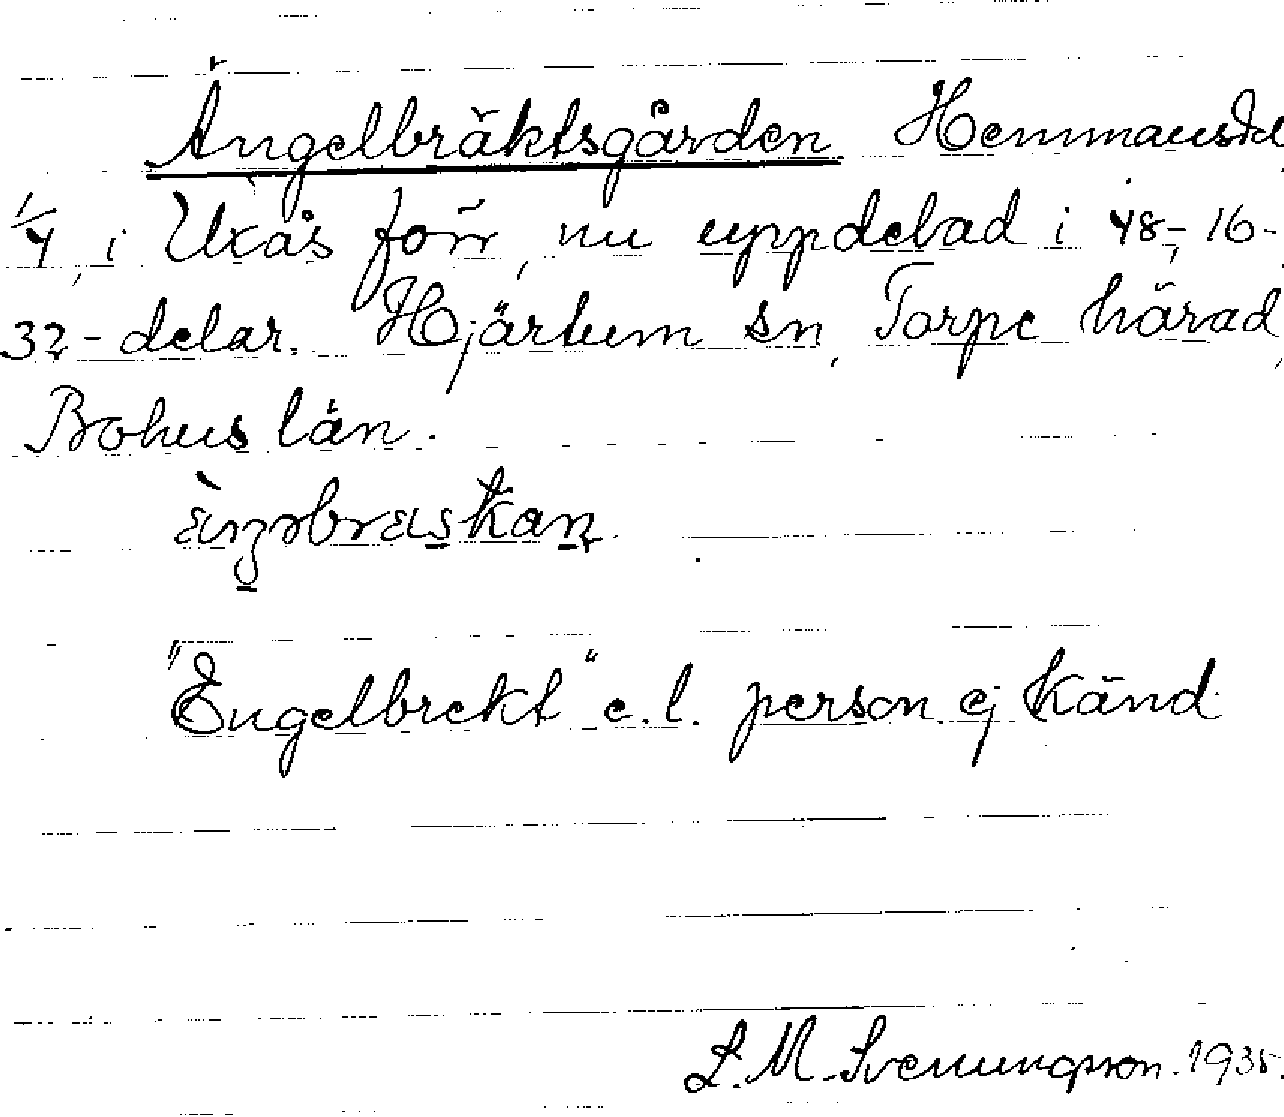 Ängelbräktsgården Hemmansdel
1/4, i Uxås förr, nu uppdelad i 48-, 16-
32-delar. Hjärtum sn, Torpe härad,
Bohus län.
"Engelbrekt" e.l. person ej känd
L. M. Svenungsson. 1935.